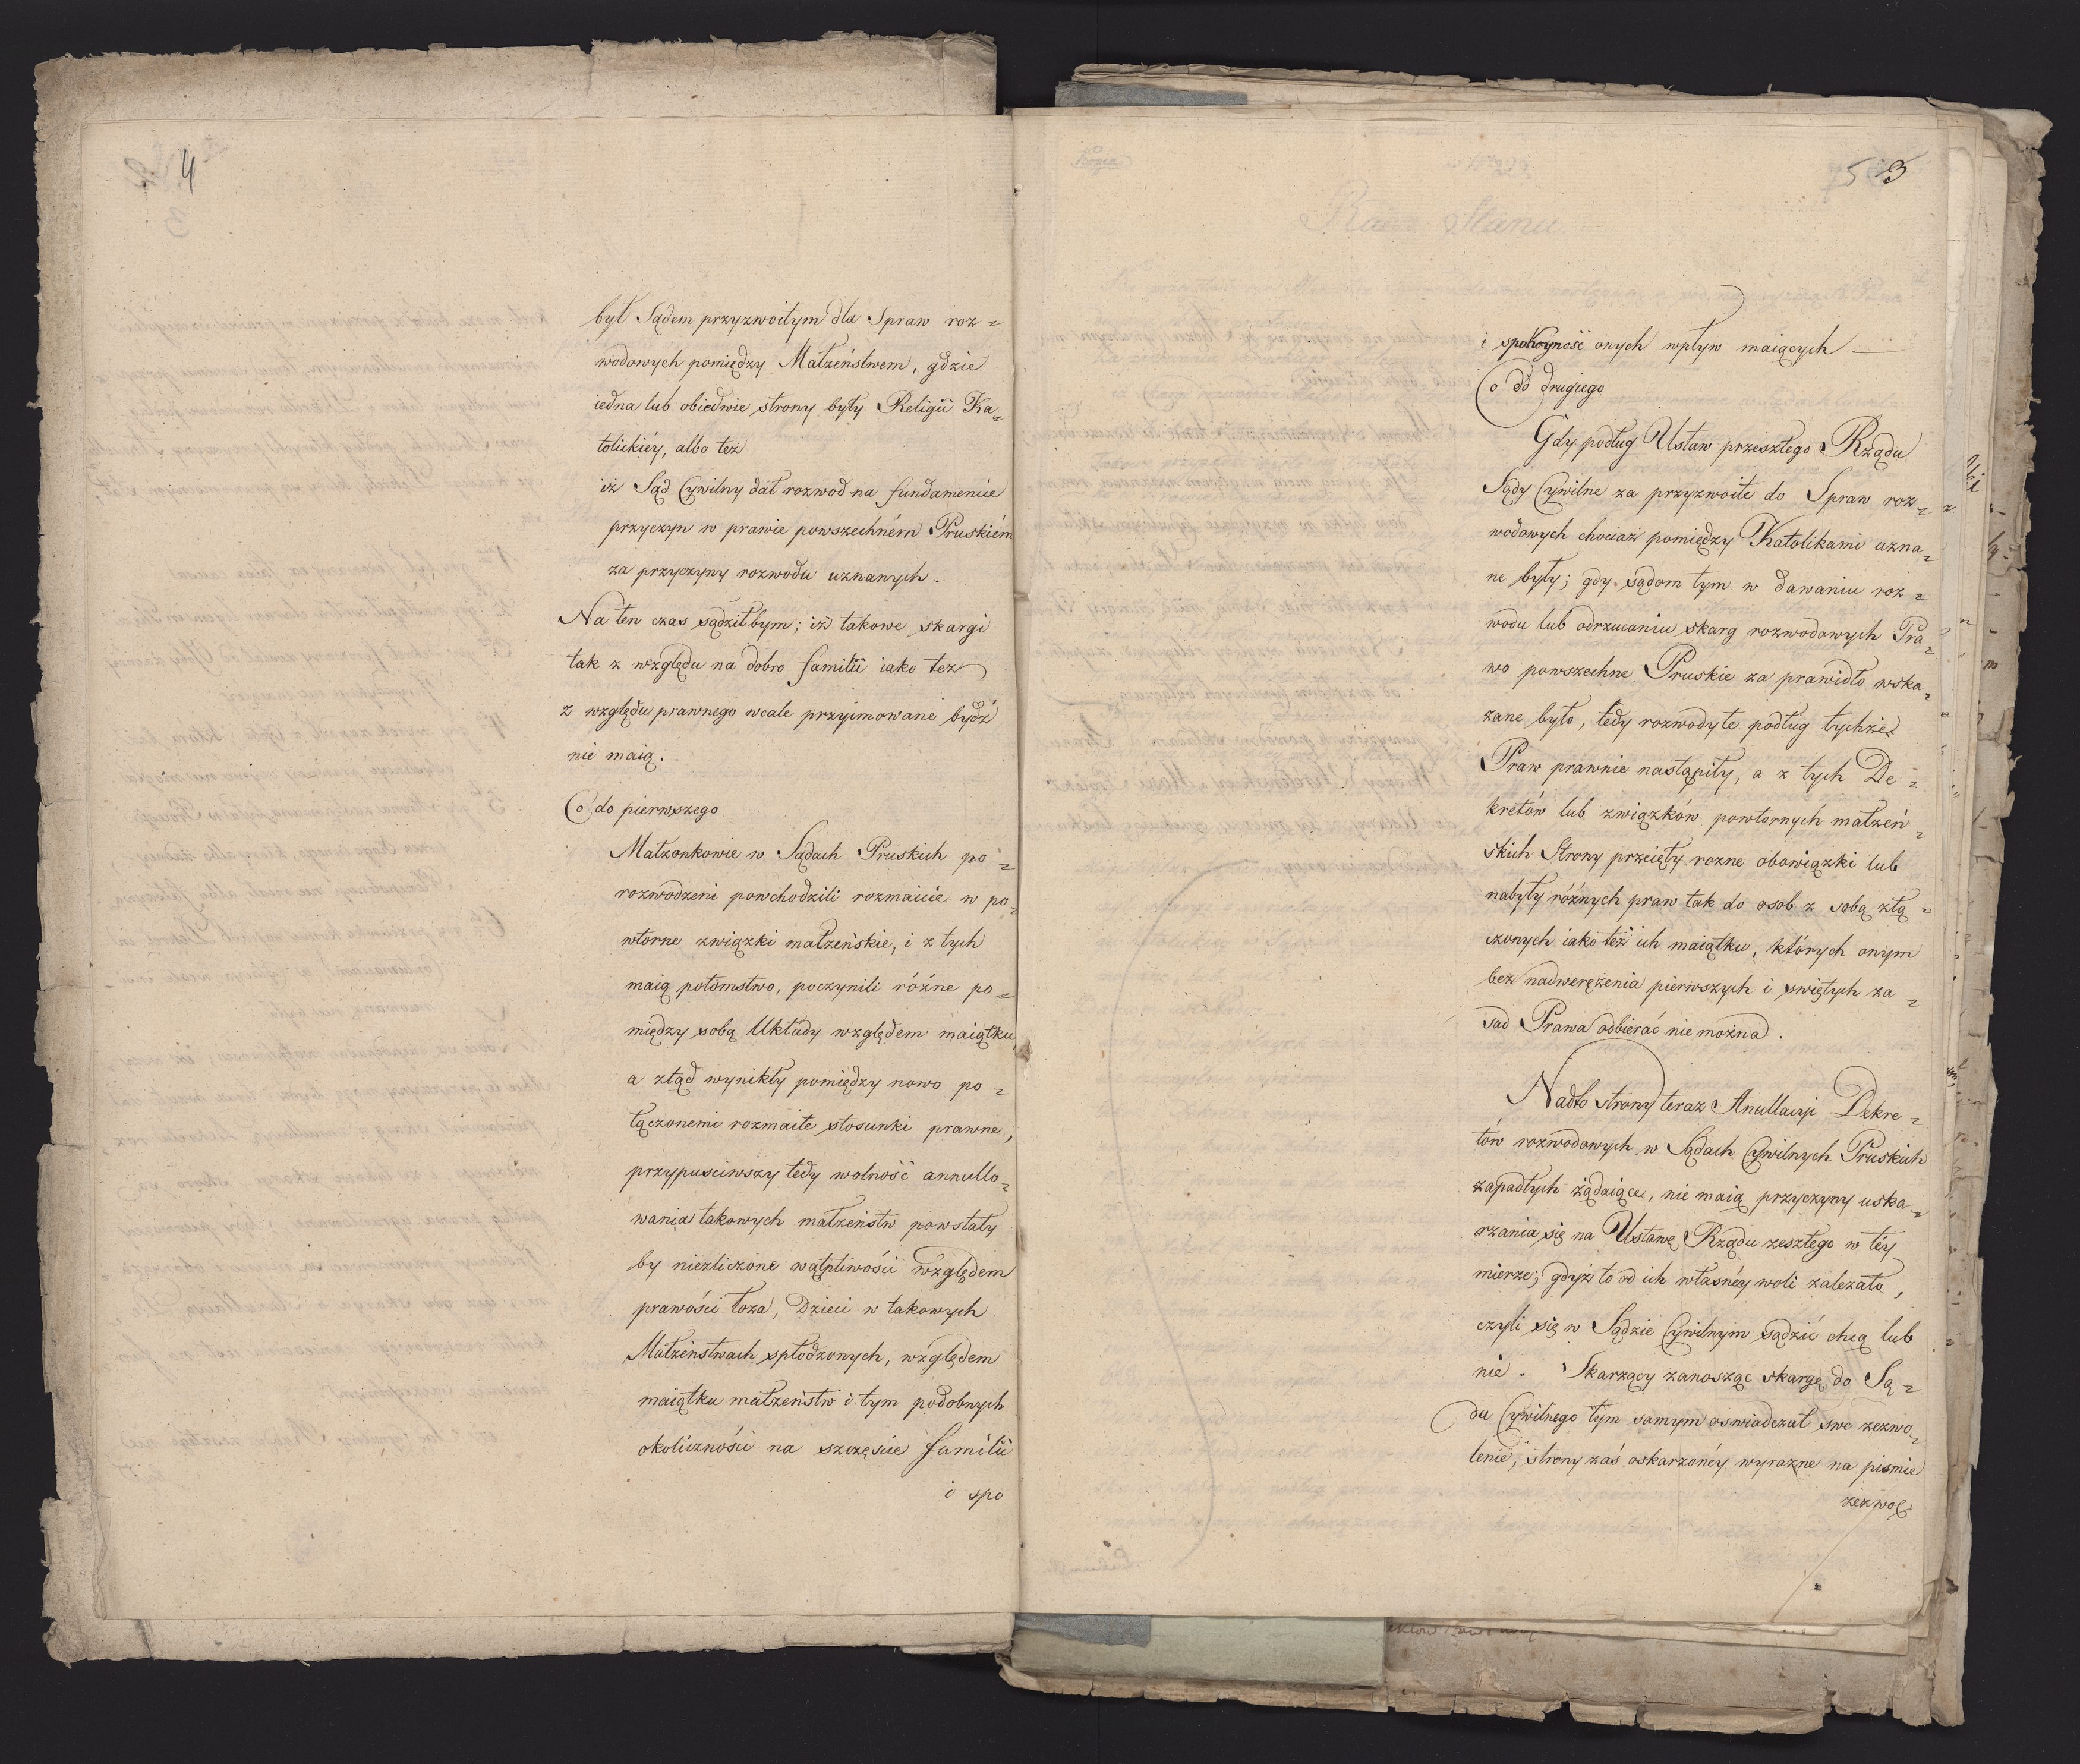 4
był Sądem przyzwoitym dla Spraw roz=
wodowych pomiędzy Małżeństwem, gdzie
iedna lub obiedwie strony były Religii Ka=
tolickiéy, albo też
iż Sąd Cywilny dał rozwod na fundamencie
przyczyn w prawie powszechném Pruskiém
za przyczyny rozwodu uznanych.
Na ten czas sądziłbym; iż takowe skargi
tak z względu na dobro familii iako też
z względu prawnego wcale przyimowane bydź
nie maią.
Co do pierwszego
Małżonkowie w Sądach Pruskich po=
rozwodzeni powchodzili rozmaicie w po=
wtorne związki małżeńskie, i z tych
maią potomstwo, poczynili różne po=
między sobą Układy względem maiątku
a ztąd wynikły pomiędzy nowo po=
łączonemi rozmaite stosunki prawne,
przypusciwszy tedy wolność annullo=
wania takowych małżeństw powstały
by niezliczone wątpliwości względem
prawości łoża, Dzieci w takowych
Małżeństwach spłodzonych, względem
maiątku małżeństw i tym podobnych
okoliczności na szczęście familii
i spo
5 3
i spokoyność onych wpływ maiących —
Co do drugiego
Gdy podług Ustaw przeszłego Rządu
Sądy Cywilne za przyzwoite do Spraw roz=
wodowych chociaż pomiędzy Katolikami uzna=
ne były; gdy sądom tym w dawaniu roz=
wodu lub odrzucaniu skarg rozwodowych Pra=
wo powszechne Pruskie za prawidło wska=
zane było, tedy rozwody te podług tychże
Praw prawnie nastąpiły, a z tych De=
kretów lub związków powtornych małżeń=
skich Strony przeięły rozne obowiązki lub
nabyły różnych praw tak do osob z sobą złą=
czonych iako też ich maiątku, których onym
bez nadwerężenia pierwszych i swiętych za=
sad Prawa odbierać nie można.
Nadto strony teraz Anullacyi Dekre=
tów rozwodowych w Sądach Cywilnych Pruskich
zapadłych żądaiące, nie maią przyczyny uska=
rzania się na Ustawę Rządu zeszłego w téy
mierze; gdyż to od ich własnéy woli zależało,
czyli się w Sądzie Cywilnym sądzić chcą lub
nie. Skarzący zanosząc skargę do Są=
du Cywilnego tym samym oswiadczał swe zezwo=
lenie, strony zaś oskarzonéy wyrazne na pismie
zezwol